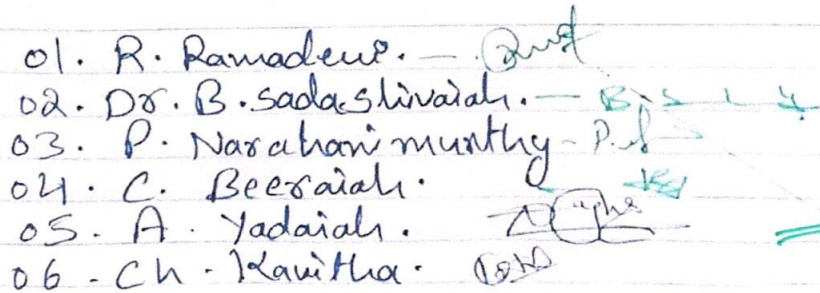 01. R. Ramadevi. -
02. Dr. B. Sadashivaiah. -
03. P. Narahari murthy -
04. C. Beeraiah.
05. A. Yadaiah.
06 - Ch. Kavitha.